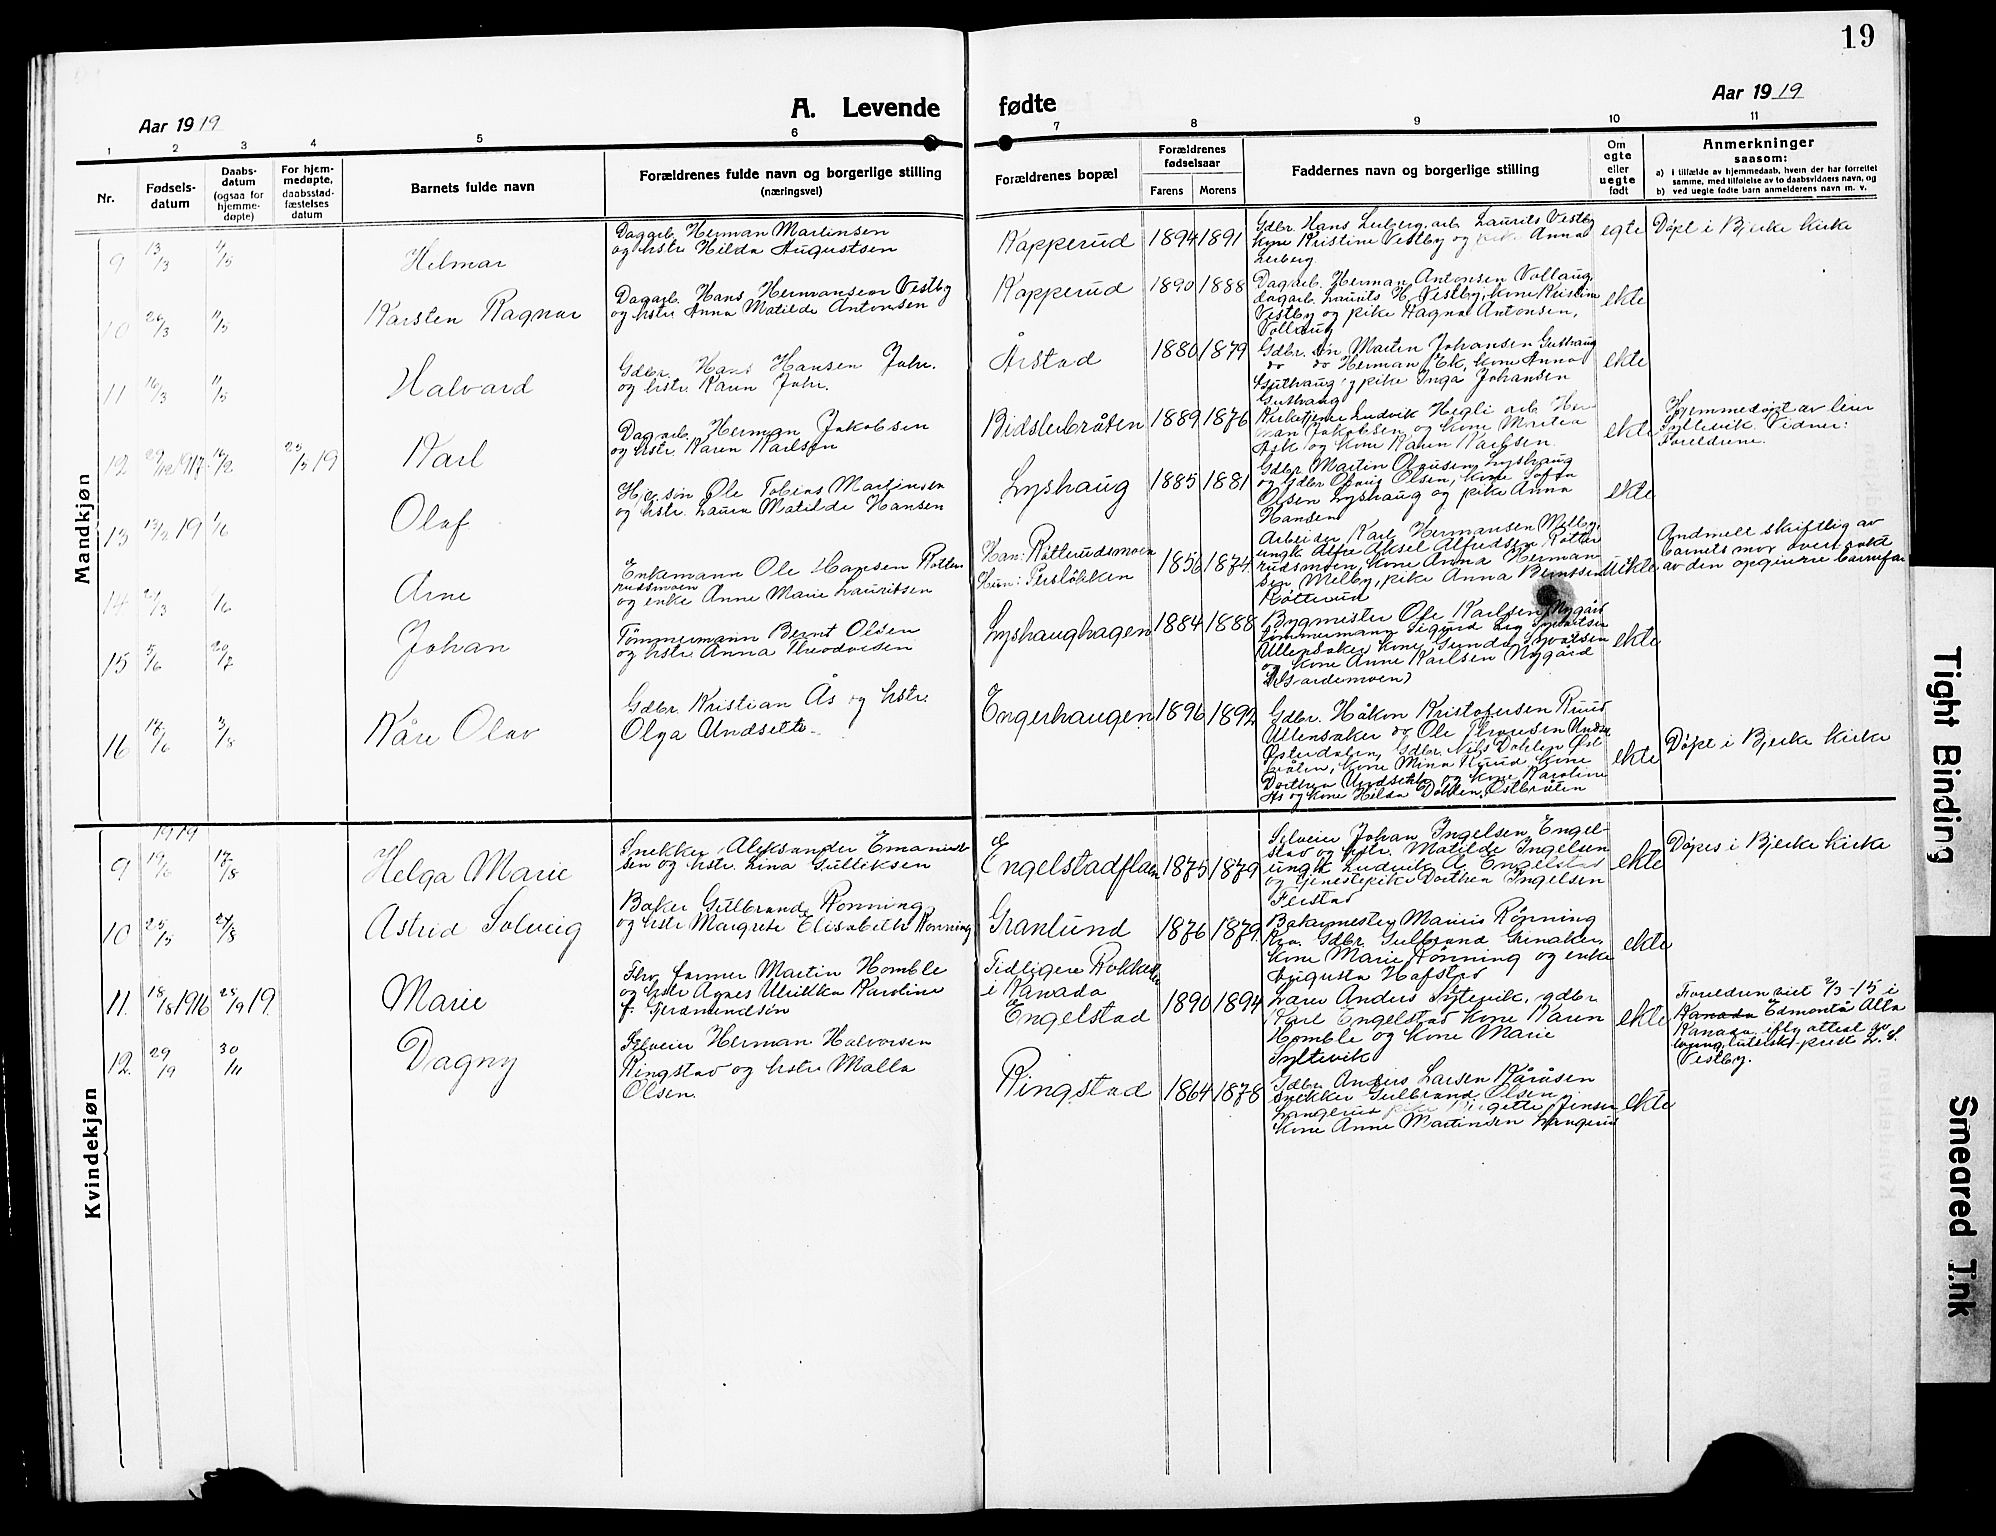 19
Aar 1919
A. Levende fødte
Aar 1919
1 2 3 4 5 6 7 8 9 10 11
Nr.
Fødsels-
datum
Daabs-
datum
(ogsaa for
hjemme-
døpte)
For hjem-
medøpte,
daabsstad-
fæstelses
datum
Barnets fulde navn
Forældrenes fulde navn og borgerlige stilling
(næringsvei)
Forældrenes bopæl
Forældrenes
fødselsaar
Farens Morens
Faddernes navn og borgerlige stilling
Om
egte
eller
uegte
født
Anmerkninger
saasom:
a) i tilfælde av hjemmedaab, hvem der har forrettet
samme, med tilføielse av to daabsvidners navn, og
b) ved uegte fødte barn anmelderens navn m. v.
Mandkjøn
9 13/3 11/5 Helmar
Dagarb. Herman Martinsen
og hstr. Hilda Augustsen
Kapperud 1894 1891
Gdbr. Hans Lerberg, arb. Laurits Vestby
kone Kristine Vestby og pike Anna
Lerberg
egte
Døpt i Bjerke kirke
10 26/3 11/5 Karsten Ragnar
Dagarb. Hans Hermansen Vestby
og hstr. Anna Matilde Antonsen
Kapperud 1890 1888
Dagarb. Herman Antonsen Vollaug,
dagarb. Laurits H. Vestby, kone Kristine
Vestby og pike Ragna Antonsen,
Vollaug
ekte
11 16/3 11/5 Halvard
Gdbr. Hans Hansen Jahr.
og hstr. Karen Jahr.
Årstad 1880 1879
Gdbr. søn Martin Johansen Guthaug
do do Herman Ek, kone Anna
Guthaug, pike Inga Johansen
Guthaug
ekte
12 1917 23/3 19 Karl
Dagarb. Herman Jakobsen
og hstr. Karen Karlsen
Bidslerbråten 1889 1876
Kirketjener Ludvik Hegli arb. Her-
man Jakobsen og kone Martea
Ask og kone Karen Karlsen.
ekte
Hjemmedøpt av
Syltevik. Vidner:
Foreldrene.
13 13/2 19 1/6 Olaf
søn Ole Tobias Martinsen
og hstr. Laura Matilde Hansen
Lyshaug 1885 1881
Gdbr. Martin Olausen, Lyshaug
og Gdbr. Olaus Olsen, kone Sofie
Olsen Lyshaug og pike Anna
Hansen
ekte
14 1/6 Arne
Enkemann Ole Hansen Røtte-
rudsmoen
og enke Anne Marie Lauritsen
Han: Røtterudsmoen
Hun: Persløkken
1856 1874
Arbeider Karl Hermansen Melby,
ungk. Alfre Aksel Alfredsen Røtte-
rudsmoen, kone Anna Herman-
sen, Melby, pike Anna Berntsen
Røtterud
uekte
Andmelt skriftlig av
barnets mor
av den opgivne barnefar
15 5/6 20/7 Johan
Tømmermann Bernt Olsen
og hstr. Anna Theodorsen
Lyshaughagen 1884 1888
Bygmester Ole Karlsen Nygård
tømmermann Sigurd
Ullensaker kone Gunda Syvertsen
og kone Anne Karlsen Nygård
(Gardemoen)
ekte
16 3/8 Kåre Olav
Gdbr. Kristian Ås og hstr.
Olga Undseth.
Engerhaugen 1896 1892
Gdbr. Håkon Kristofersen Ruud
Ullensaker do Ole Undset
Østerdalen, Gdbr. Nils Dahlen Øst-
bråten, kone Mina Ruud, kone
Dorthea Undseth og kone Karoline
Ås og kone Hilda Dahlen, Østbråten
ekte
Døpt i Bjerke kirke
Kvindekjøn
1919
9 19/6 17/8 Helga Marie
Snekker Aleksander Emanuel-
sen og hstr. Lina Gulliksen
Engelstadflaen 1875 1879
Selveier Johan Ingelsen, Engel-
stad og hstr. Matilde Ingelsen
ungk. Ludvik A. Engelstad
og tjenestepike Dorthea Ingelsen
Feistad
ekte
Døpt i Bjerke kirke
10 25/5 24/8 Astrid Solveig
Baker Gulbrand Rønning
og hstr. Margrete Elisabeth Rønning
Granlund 1876 1879
Bakermester Rønning
Gdbr. Gulbrand Grinaker,
kone Marie Rønning og enke
Augusta Hafstad
ekte
11. 18/8 1916 28/9 19. Marie
Fhv. farmer Martin Homble
og hstr. Agnes Ulrikka Karoline
f. Gudmundsen
Tidligere
i Kanada
Engelstad 1890 1894
Lærer Anders Syltevik, gdbr.
Karl Engelstad kone Karen
Homble og kone Marie
Syltevik
ekte
Foreldren viet 2/3-15 i
Kanada Edmonta Alta
Kanada ifly. attest av
prest L. S.
Vestby.
12. 29/9 30/11 Dagny
Selveier Herman Halvorsen
Ringstad og hstr. Malla
Olsen.
Ringstad 1864 1878
Gdbr. Anders Larsen Kåråsen
snekker Gulbrand Olsen
Langerud pike Birgitte Jensen
kone Anne Martinsen Langerud
ekte
Tight Binding
Smeared Ink